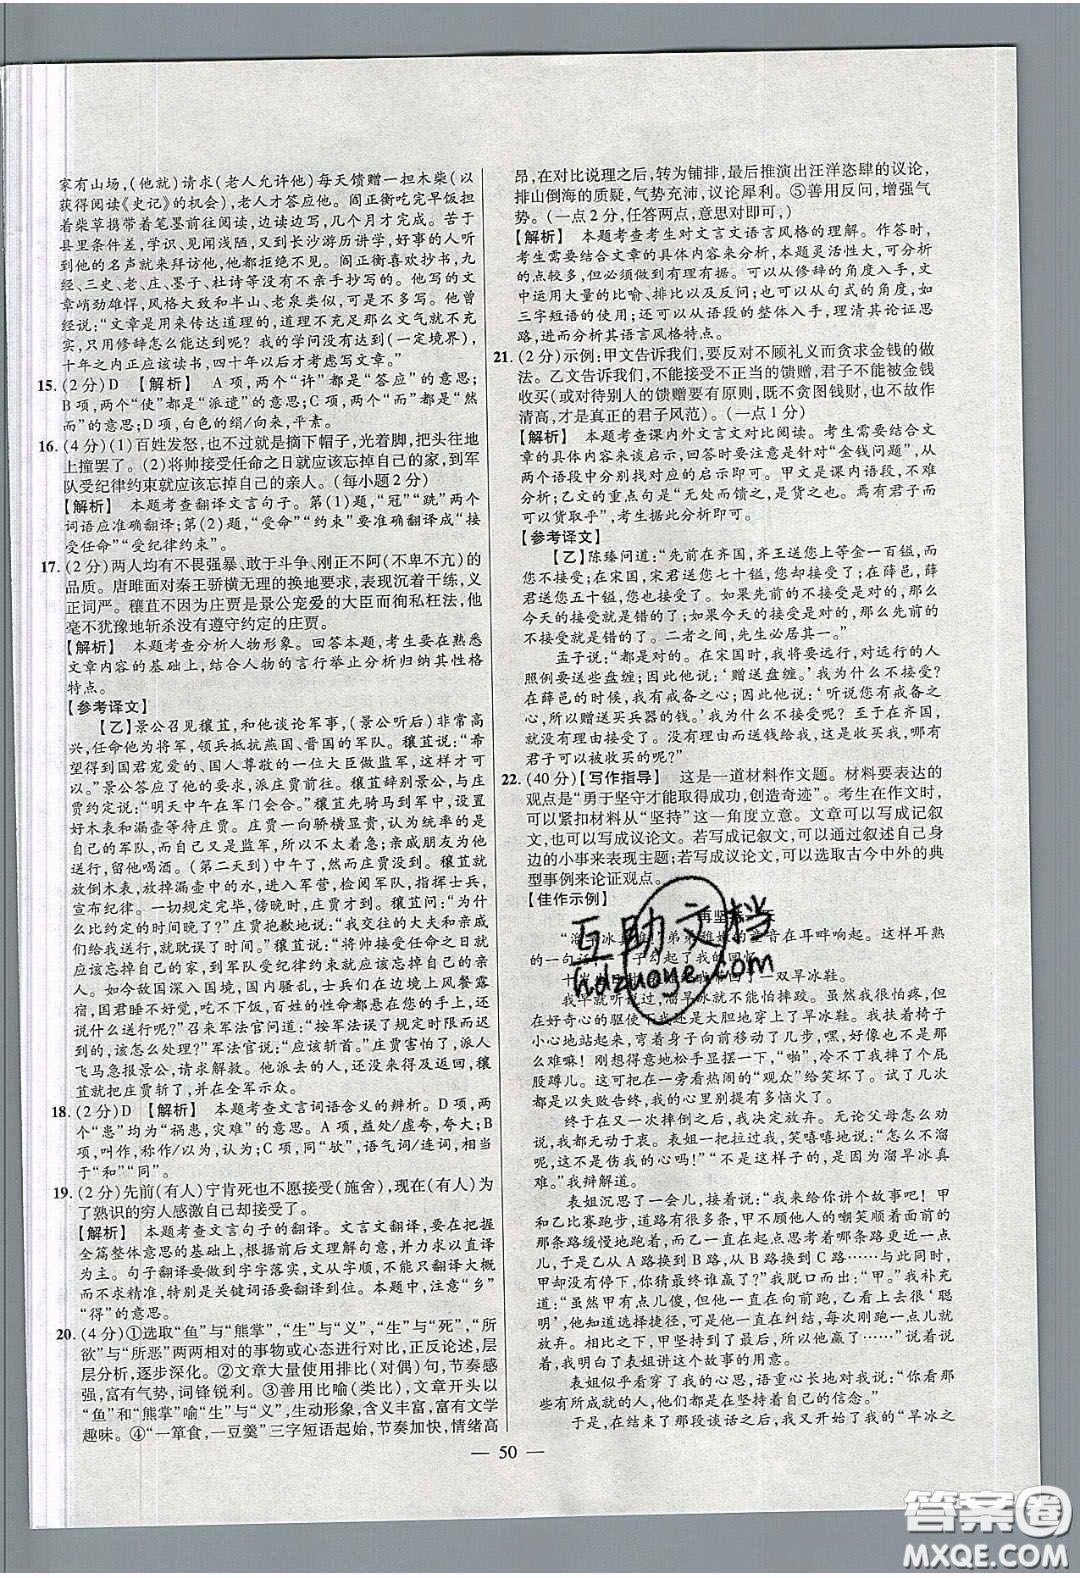 家有山场,(他就)请求(老人允许他)每天馈赠一担木柴(以
获得阅读《史记》的机会),老人才答应他。阎正衡吃完饭背
着柴草携带着笔墨前往阅读,边读边写,几个月才完成。苦于
县里条件差,学识、见闻浅陋,又到长沙游历讲学,好事的人听
到他的名声就来拜访他。阎正衡喜欢抄书,几部大的书,九
经、三史、老、庄、墨子、杜诗等无不亲手抄写的。他写的文
章峭劲雄悍,风格大致和半山、老泉类似,可是又有不同。他曾
经说:“文章是用来传达道理的,道理不充分那么文气就不足,
只用修辞怎么能达到呢?我的学问没有达到(一定境界),
十年之内正应该读书,四十年以后才考虑写文章。”
15. (2分)D 【解析】 A项,两个“许”都是“答应”的意思;
B项,两个“使”都是“派遣”的意思;C项,两个“而”都是“然
而”的意思;D项,白色的绢/向来,平素。
16. (4分)(1)百姓发怒,也不过就是摘下帽子,光着脚,把头往地
上撞罢了。(2)将帅接受任命之日就应该忘掉自己的家,到军
队受纪律约束就应该忘掉自己的亲人。(每小题2分)
【解析】 本题考查翻译文言句子。第(1)题,“冠”“跣”两个
词语应准确翻译;第(2)题,“受命”“约束”要准确翻译成“接
受任命”“受纪律约束”。
17. (2分)两人均有不畏强暴、敢于斗争、刚正不阿(不卑不亢)的
品质。唐雎面对秦王骄横无理的换地要求,表现沉着干练,义
正词严。穰苴不因为庄贾是景公宠爱的大臣而徇私枉法,他
毫不犹豫地斩杀没有遵守约定的庄贾。
【解析】 本题考查分析人物形象。回答本题,考生要在熟悉
文章内容的基础上,结合人物的言行举止分析归纳其性格
特点。
【参考译文】
【乙】景公召见穰苴,和他谈论军事,(景公听后)非常高
兴,任命他为将军,领兵抵抗燕国、晋国的军队。穰苴说:“希
望得到国君宠爱的、国人尊敬的一位大臣做监军,这样才可
以。”景公答应了他的要求,派庄贾前往。穰苴辞别景公,与庄
贾约定说:“明天中午在军门会合。”穰苴先骑马到了军营,设
好木表和漏壶等待庄贾。庄贾一向骄横显贵,认为统率的是
自己的军队,而自己又是监军,所以不太着急;亲戚朋友为他
送行,留他喝酒。(第二天到)中午了,然而庄贾没有到。穰苴就
放倒木表,放掉漏壶中的水,进入军营,检阅军队,指挥士兵,
宣布纪律。一切规定完毕,傍晚时,庄贾才到。穰苴问:“为什
么比约定的时间晚了?”庄贾抱歉地说:“我交往的大夫和亲戚
们给我送行,就耽误了时间。”穰苴说:“将帅接受任命之日就
应该忘掉自己的家,到军队受纪律约束就应该忘掉自己的亲
人。如今敌国深入国境,国内骚乱,士兵们在边境上风餐露
宿,国君睡不好觉,吃不下饭,百姓的性命都悬在您的身上,还
说什么送行呢?”召来军法官问道:“按军法误了规定时间而迟
到的,该怎么处理?”军法官说:“应该斩首。”庄贾害怕了,派人
飞马急报景公,请求解救。他派去的人还没来得及返回,穰
苴就把庄贾斩了,并在全军示众。
18. (2分)D 【解析】 本题考查文言词语含义的辨析。D项,两
个“患”均为“祸患,灾难”的意思。A项,益处/虚夸,夸大;B
项,叫作,称作/以为,认为;C项,同“欤”,语气词/连词,相当
于“和”“同”。
19. (2分)先前(有人)宁肯死也不愿接受(施舍),现在(有人)为
了熟识的穷人感激自己却接受了。
【解析】 本题考查文言句子的翻译。文言文翻译,要在把握
全篇整体意思的基础上,根据前后文理解句意,并尽可能以直译
为主。句子翻译要做到字字落实,文从字顺,不能只翻译大概
而不求精准,特别是关键词语要翻译到位。本题中,注意“乡”
“得”的意思。
20. (4分)①选取“鱼”与“熊掌”,“生”与“义”,“生”与“死”,“所
欲”与“所恶”两两相对的事物或心态进行对比,正反论述,层
层分析,逐步深化。②文章大量使用排比(对偶)句,节奏感
强,富有气势,词锋锐利。③善用比喻(类比),文章开头以
“鱼”和“熊掌”喻“生”与“义”,生动形象,含义丰富,富有文学
趣味。④“一箪食,一豆羹”三字短语起始,节奏加快,情绪高
昂,在对比说理之后,转为铺排,最后推演出汪洋恣肆的议论,
排山倒海的质疑,气势充沛,议论犀利。⑤善用反问,增强气
势。(一点2分,任答两点,意思对即可,)
【解析】 本题考查考生对文言文语言风格的理解。作答时,
考生需要结合文章的具体内容来分析,本题灵活性大,可分析
的点较多,但必须做到有理有据。可以从修辞的角度入手,文
中运用大量的比喻、排比及反问;也可以从句式的角度入手,如
三字短语的使用;还可以从语段的整体入手,理清其论证思
路,进而分析其语言风格特点。
21. (2分)示例:甲文告诉我们,要反对不顾礼义而贪求金钱的做
法。乙文告诉我们,不能接受不正当的馈赠,君子不能被金钱
收买(或对待别人的馈赠要有原则,既不贪图钱财,也不故作
清高,才是真正的君子风范)。(一点1分)
【解析】 本题考查课内外文言文对比阅读。考生需要结合文
章的具体内容来谈启示,回答时要注意是针对“金钱问题”,从
两个语段中分别找对应的启示即可。甲文是课内语段,不再
赘述;乙文的重点句是“无处而馈之,是货之也。焉有君子而
可以货取乎”,根据此分析即可。
【参考译文】
【乙】陈臻问道:“先前在齐国,齐王送您上等金一百镒,
您不接受;在宋国,宋君送您七十镒,您却接受了;在薛邑,薛
君送您五十镒,您也接受了。如果先前的不接受是对的,那么
今天的接受就是错的;如果今天的接受是对的,那么先前的
不接受就是错的。二者之间,先生必居其一。”
孟子说:“都是对的。在宋国时,我将要远行,对远行的人
照例要送些盘缠;因此他说:‘赠送盘缠。’我为什么不接受?
在薛邑的时候,我有戒备之心;因此他说:‘听说您有戒备之
心,所以赠送买兵器的钱。’我为什么不接受?至于在齐国,就
没有理由接受了。没有理由而送钱给我,这是收买我,哪有
君子可以用钱收买的呢?”
22. (40分)【写作指导】 这是一道材料作文题。材料要表达的
观点是“勇于坚守才能取得成功,创造奇迹”。考生在作文时,可
以紧扣材料从“坚持”这一角度立意。文章可以写成记叙
文,也可以写成议论文。若写成记叙文,可以通过叙述自己身
边的小事来表现主题;若写成议论文,可以选取古今中外的典
型事例来论证观点。
【佳作示例】
再坚
“溜旱冰真难!”
的一句话
我早就听说过,溜旱冰最不能怕摔跤。虽然我很怕疼,但
在好奇心的驱使下我还是大胆地穿上了旱冰鞋。我扶着椅子
小心地站起来,弯着身子向前挪动了几步,嘿,好像也不是那
么难嘛!刚想得意地松手显摆一下,“啪”,冷不丁我摔了个屁
股蹲儿。这把在一旁看热闹的“观众”给笑坏了。试了几次,
都是以失败告终,我的心里别提有多恼火了。
终于在又一次摔倒之后,我决定放弃。无论父母怎么劝
说,我都无动于衷。表姐一把拉过我,笑嘻嘻地说:“怎么不溜
呢,这不是还挺有信心的吗!”“不是这样子的,是溜旱冰真
难。”我辩解道。
表姐沉思了一会儿,说:“我来给你讲个故事吧。有一天,
甲和乙比赛跑步,道路有很多条,甲不顾人们的嘲笑顺着前面
那条路缓慢地跑着,而乙一直在起点思考着哪条路更近一些,
一会儿从A路换到B路,从B路换到C路……与此同时,
甲却没有停下,你猜最终谁赢了?”我脱口而出:“甲。”我补充
道:“虽然甲有点儿傻,但他一直在向前跑,乙呢?尽管很聪
明,他知道选择捷径,可是他一直在纠结,每次刚跑一点儿就
放弃。相比之下,甲坚持了下来,所以他成功了……”说着说着
我似乎有点儿明白表姐讲这个故事的用意。
表姐似乎看穿了我的心思,语重心长地对我说:“你看那
些成功的人,他们都是在坚持着自己的信念。”
于是,在结束了那段谈话之后,我又开始了我的“旱冰之
— 50 —
互助文档
hdzuoye.com
答案圈
MXQE.COM